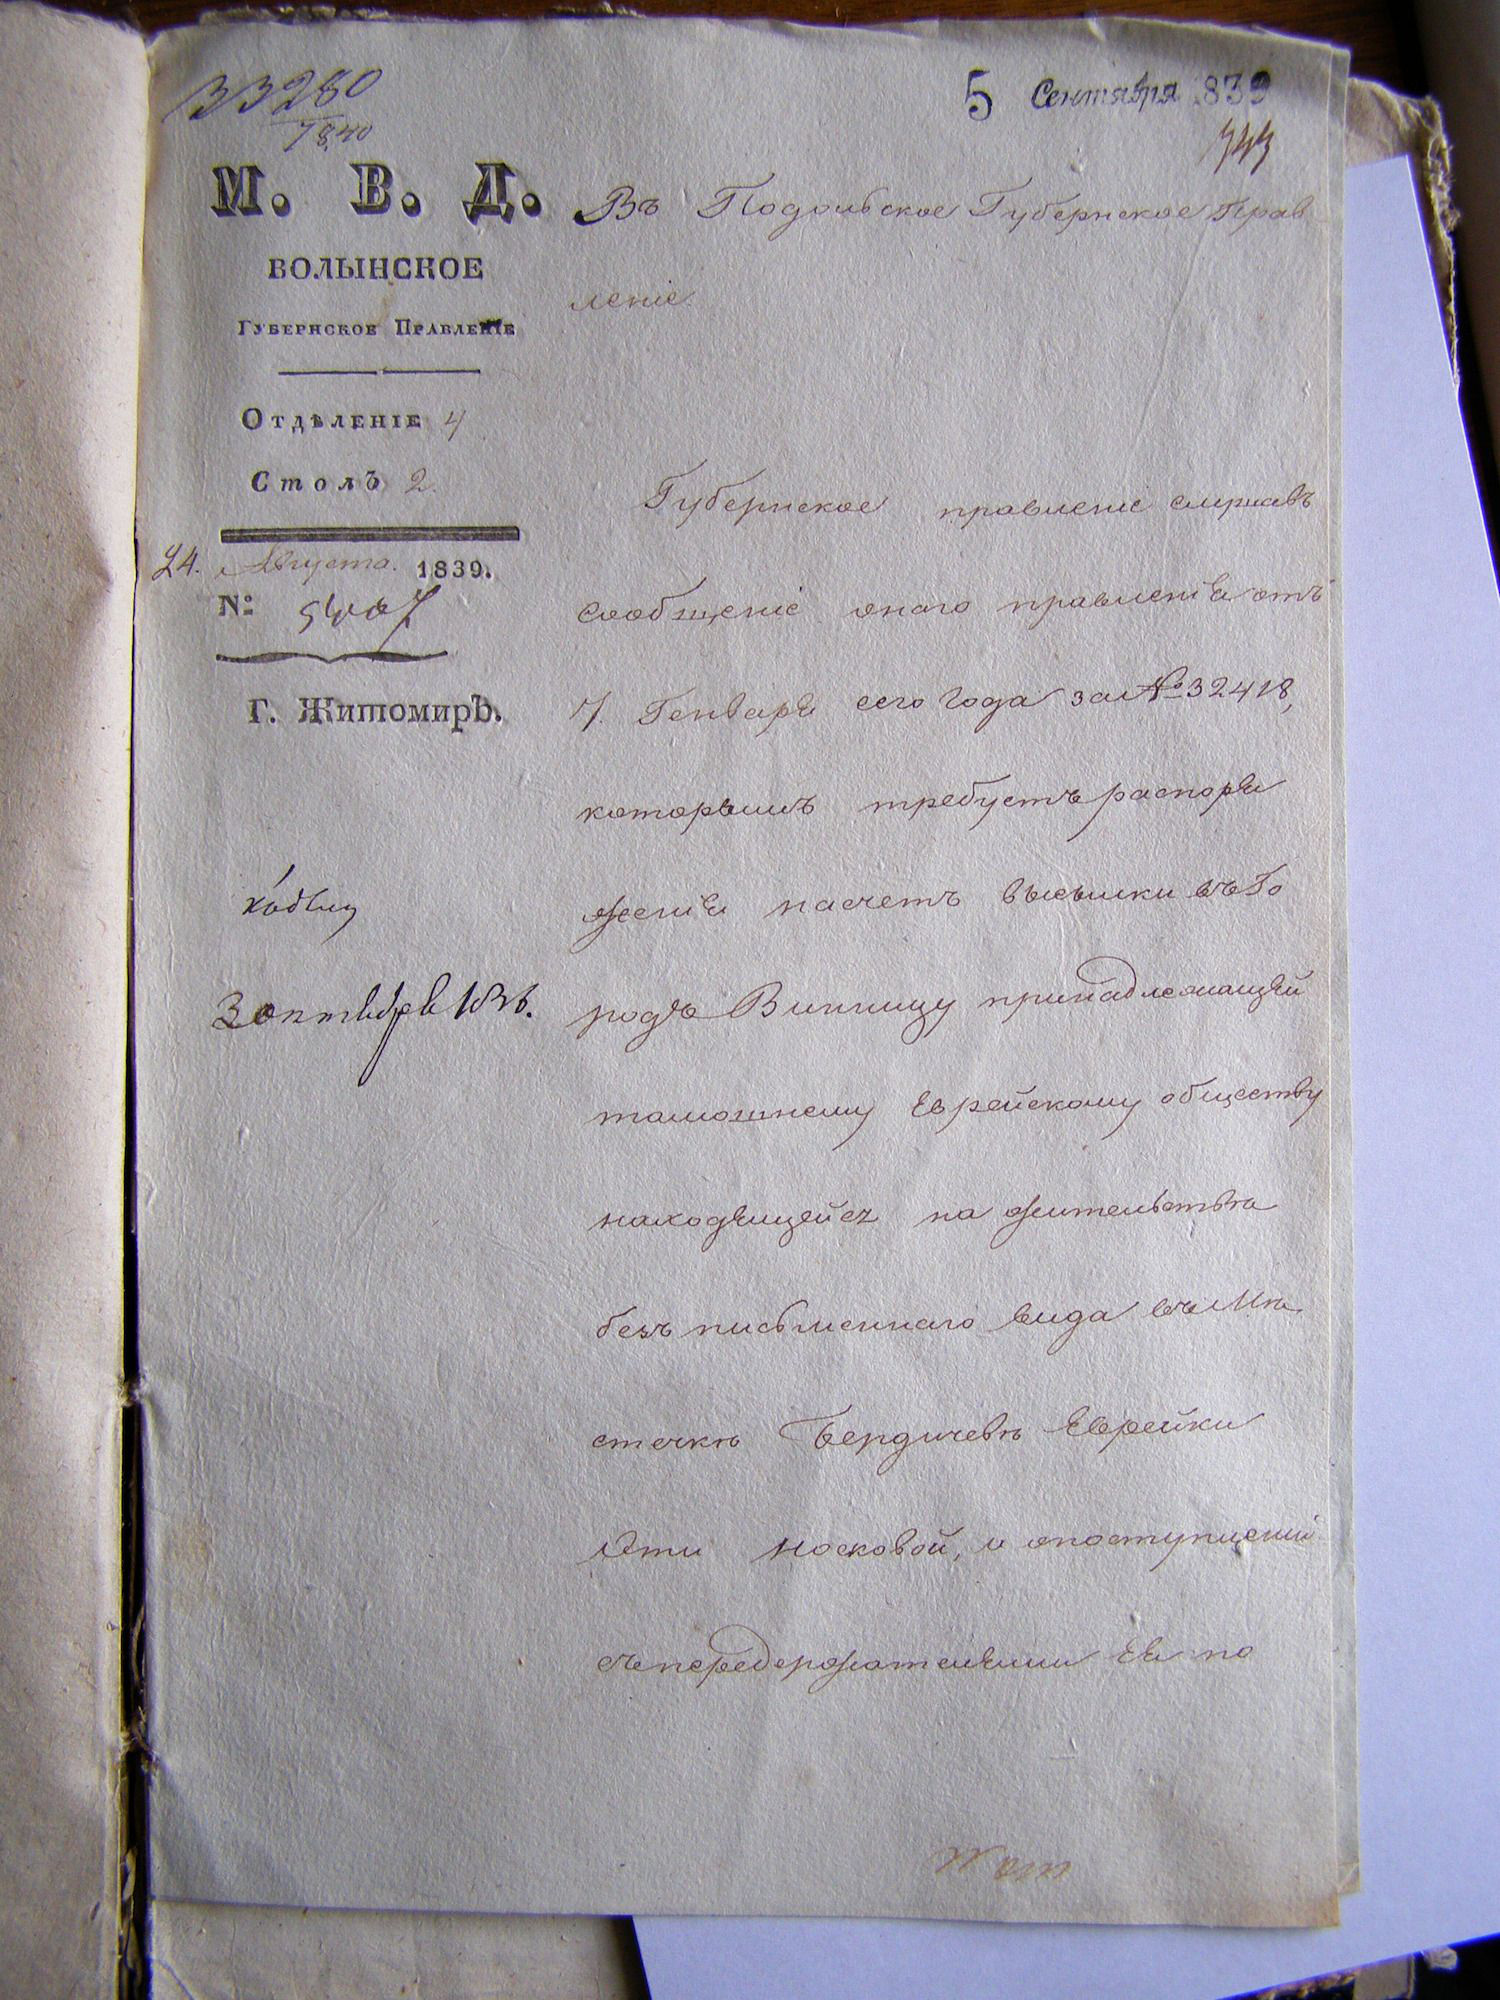 33280
1840
5 Сентября 1839
М. В. Д.
ВОЛЫНСКОЕ
ГУБЕРНСКОЕ ПРАВЛЕНІЕ
ОТДѢЛЕНІЕ 4
Столъ 2.
24. Августа. 1839.
№: 5407
Г. Житомиръ.
3 октября
Въ Подольское Губернское Прав
леніе
Губернское правленіе слушавъ
сообщеніе онаго правленія отъ
7. Генваря сего года за № 32418,
которымъ требуетъ распоря
женія насчетъ высылки въ Го
родъ Винницу принадлежащей
тамошнему Еврейскому обществу
находящейся на жительствѣ
безъ письменнаго вида въ Мѣ
стечкѣ Бердичевѣ Еврейки
Эти Носковой, и опоступленіи
съпередержателями Ея по